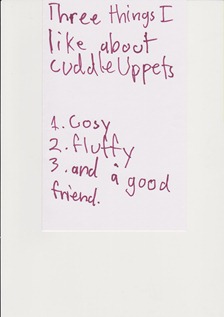 Three things I
like about
cuddleUppets
1. Cosy
2. fluffy
3. and a good
friend.